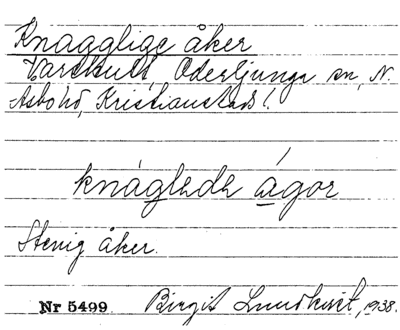 Knagglige åker
Varshult, Oderljunga sn, N.
Åsbo hd, Kristianstads l.
knáglede ágor
Stenig åker.
Nr 5499 Birgit Lundkvist, 1938.